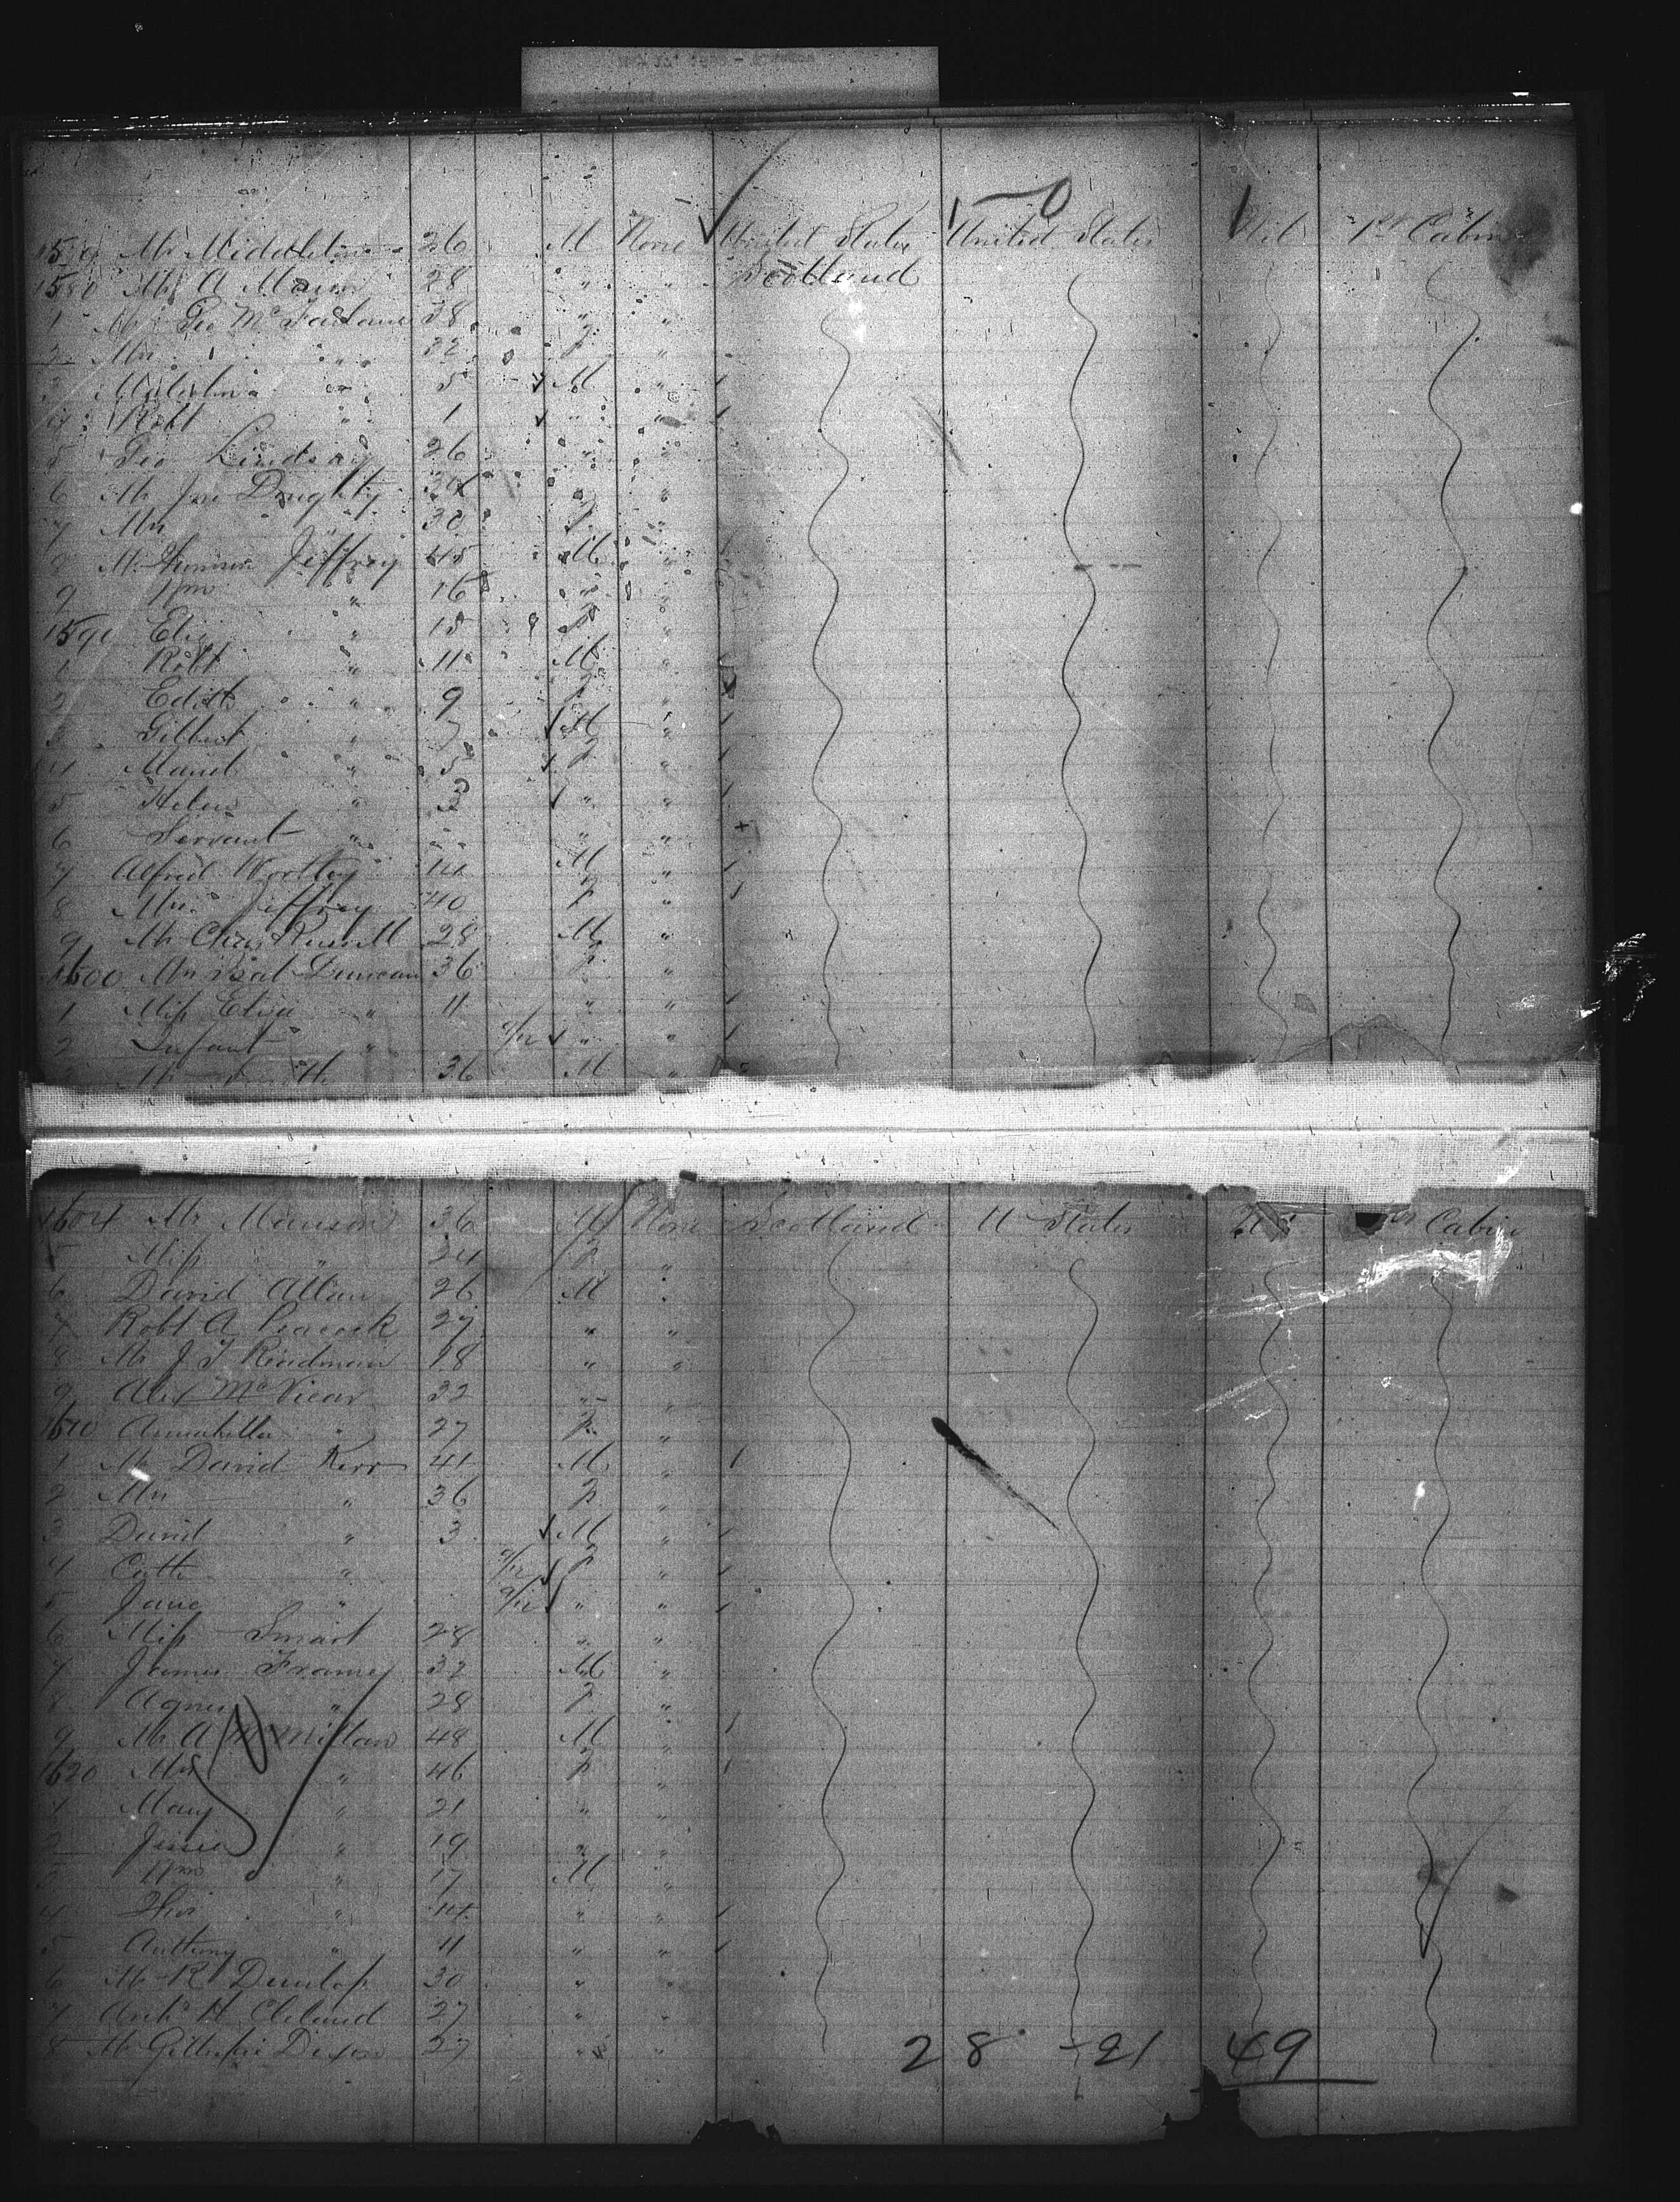 Mr Middleton 26 M None United States United States 1st Cabin
1580 Mr A Mann 28 " " Scotland
1 Mr Geo McFarlane 38 " "
2 Mrs " 32 F "
3 Malcolm " 5 M "
4 Robt " 1 " "
5 Geo Lindsay 26 " "
6 Mr Jno Doughty " "
7 Mrs " 30 F "
8 Mr Jeffrey 45 M "
9 Wm " 16 " "
1590 Eliz " 15 F "
1 Robt " 11 M "
2 Edith " 9 F "
3 Gilbert " 7 M "
4 Maud " 5 F "
5 Helen " 3 " "
6 Servant " " "
7 Alfred Wortley 14 M "
8 Mrs Jeffrey 40 F "
9 Mr Chas Russell 28 M "
1600 Mrs Isab Duncan 36 F "
1 Miss Eliza " 11 " "
2 Infant " " "
36 M "
1604 Mr Manson 36 M None Scotland U States U S Cabin
5 Miss " 24 F "
6 David Allan 26 M "
7 Robt A Peacock 27 " "
8 Mr J T Readman 18 " "
9 Alex McVicar 32 " "
1610 Annabella " 27 F "
1 Mr David Kerr 41 M "
2 Mrs " 36 F "
3 David " 3 M "
4 Cath " F "
5 Jane " 9/12 " "
6 Miss Smart 28 " "
7 James Framey 32 M "
8 Agnes " 28 F "
9 Mr A McMillan 48 M "
1620 Mrs " 46 F "
1 Mary " 21 " "
2 Jessie " 19 " "
3 Wm " 17 M "
4 Thos " 14 " "
5 Anthony " 11 " "
6 Mr R Dunlop 30 " "
7 Archd H Cleland 27 " "
8 Mr Gillespie Dixon 27 " "
28 - 21 49